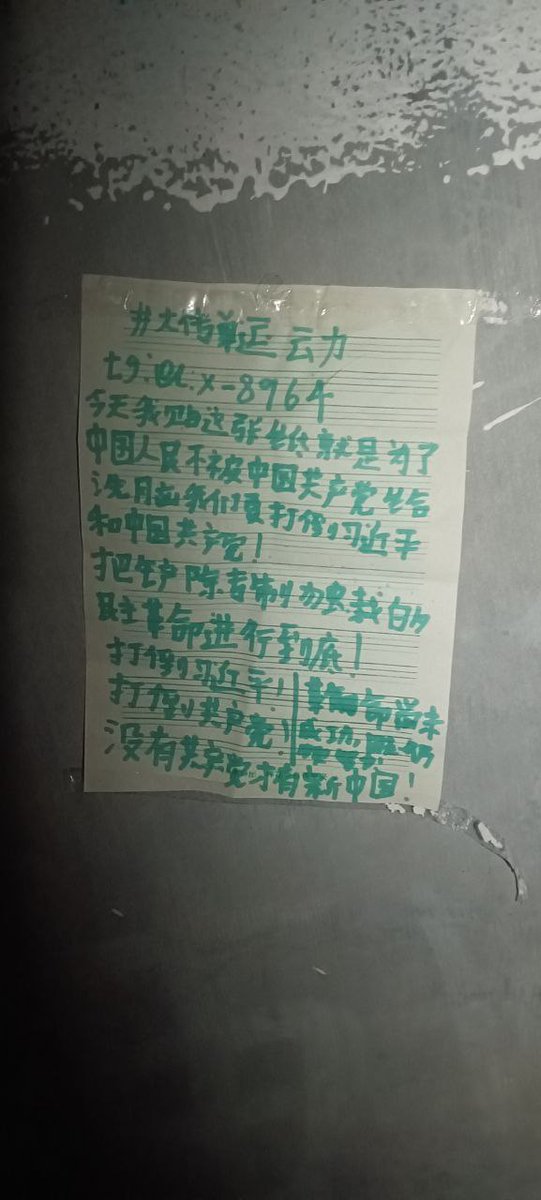 #大传单运动
tg: @L.X-8964
今天我贴这张 就是为了
中国人民不被中国共产党
我们要打倒习近平
和中国共产党!
把 除专制独裁的
民主革命进行到底!
打倒习近平!
打倒共产党!
革命尚未
成功, 仍
没有共产党才有新中国!